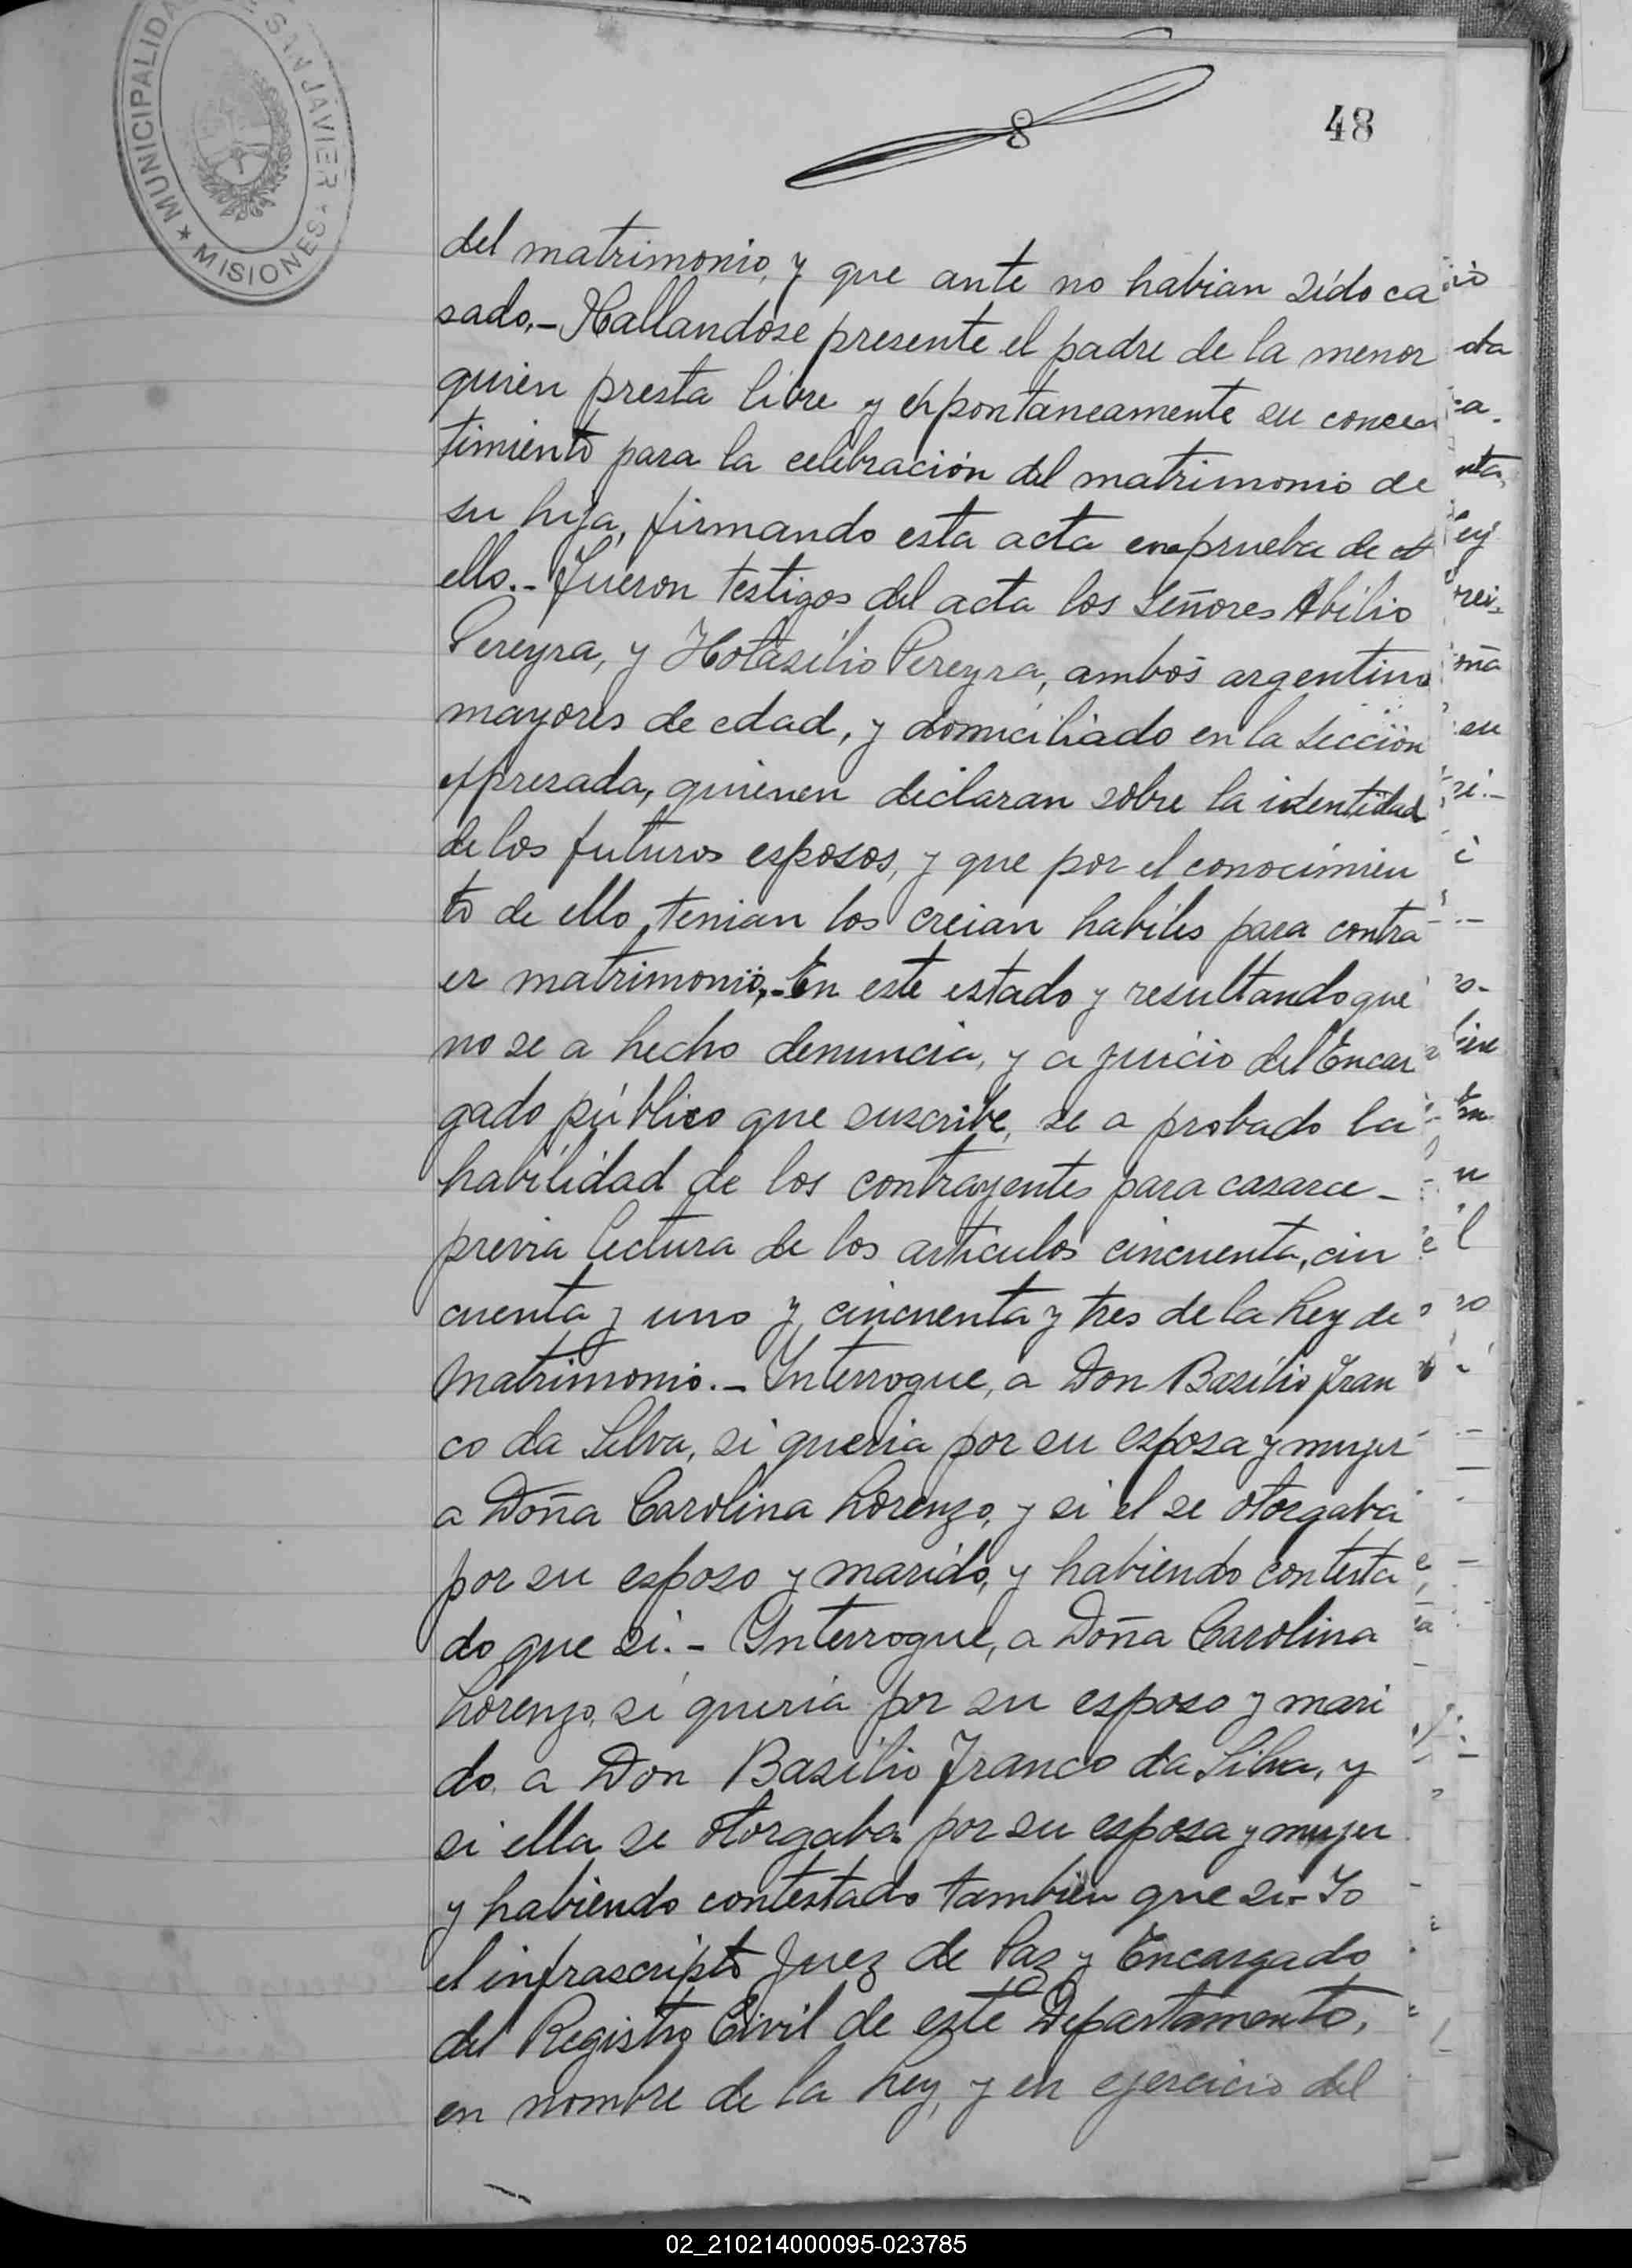 MUNICIPALIDAD DE SAN JAVIER
★ MISIONES ★
8
48
del matrimonio, y que ante no habian sido ca
sado.- Hallandose presente el padre de la menor
quien presta libre y espontaneamente su concen
timiento para la celebración del matrimonio de
su hija, firmando esta acta en prueba de
ello.- Fueron testigos del acta los Señores Abilio
Pereyra, y Hotasilio Pereyra, ambos argentino
mayores de edad, y domiciliado en la Sección
expresada, quienen declaran sobre la identidad
de los futuros esposos, y que por el conocimien
to de ello tenian los creian habiles para contra
er matrimonio,- En este estado y resultando que
no se a hecho denuncia, y a juicio del Encar
gado público que suscribe, se a probado la
habilidad de los contrayentes para casarce -
previa lectura de los articulos cincuenta, cin
cuenta y uno y cincuenta y tres de la Ley de
Matrimonio.- Interrogue, a Don Basilio Fran
co da Silva, si queria por su esposa y mujer
a Doña Carolina Lorenzo, y si el se otorgaba
por su esposo y marido, y habiendo contesta
do que si.- Interrogue, a Doña Carolina
Lorenzo, si queria por su esposo y mari
do, a Don Basilio Franco da Silva, y
si ella se otorgaba por su esposa y mujer
y habiendo contestado tambien que si- Yo
el infrascripto Juez de Paz y Encargado
del Registro Civil de este Departamento,
en nombre de la Ley, y en ejercicio del
02_210214000095-023785